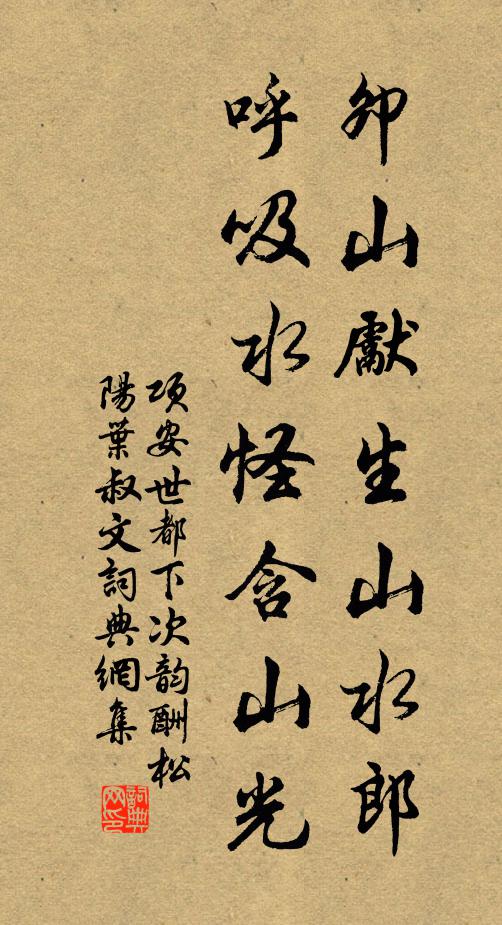 卯山獻生山水郎
呼吸水怪含山光
項安世都下次韵酬松
陽葉叔文詞典網集
詞典
網印